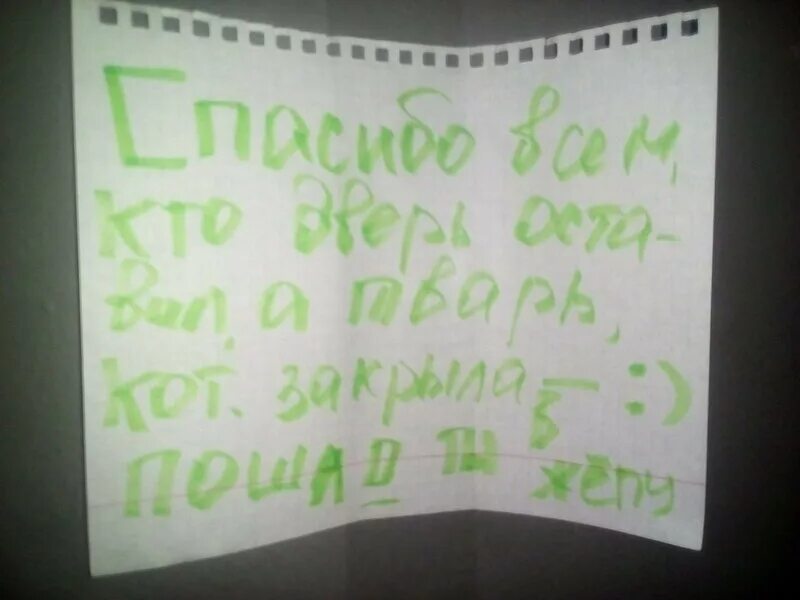 Спасибо всем,
кто дверь оста-
вил, а тварь,
кот. закрыла — :)
в жёпу